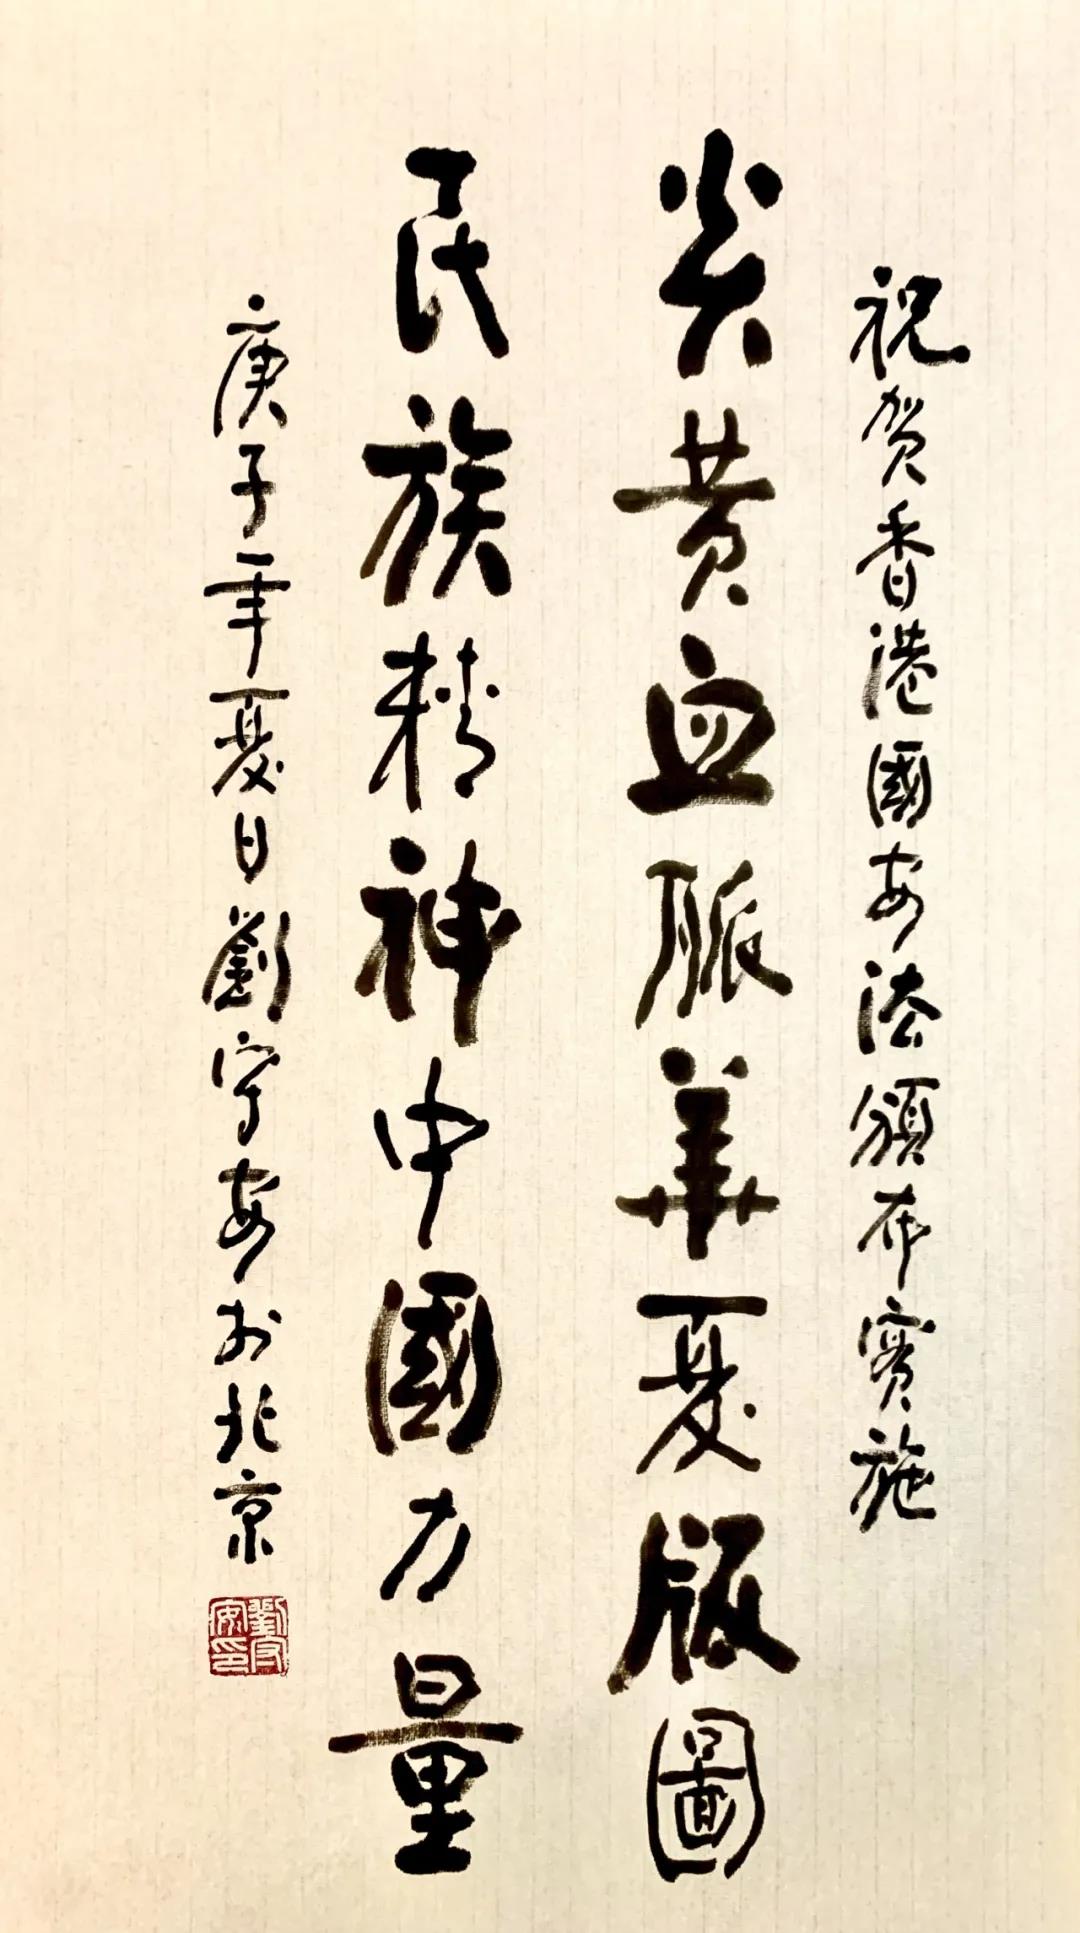 祝贺香港國安法頒布實施
炎黄血脈華夏版圖
民族精神中國力量
庚子年夏日劉守安於北京
劉守安印